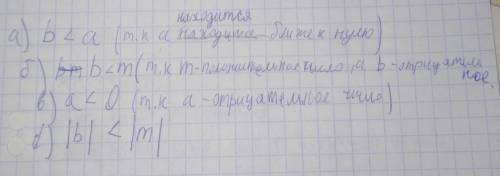 находится
а) b < a (т.к а находится ближе к нулю)
б) b < m (т.к m-положительное число, а b-отрицатель
ное.
в) a < 0 (т.к а-отрицательное число)
|b| < |m|